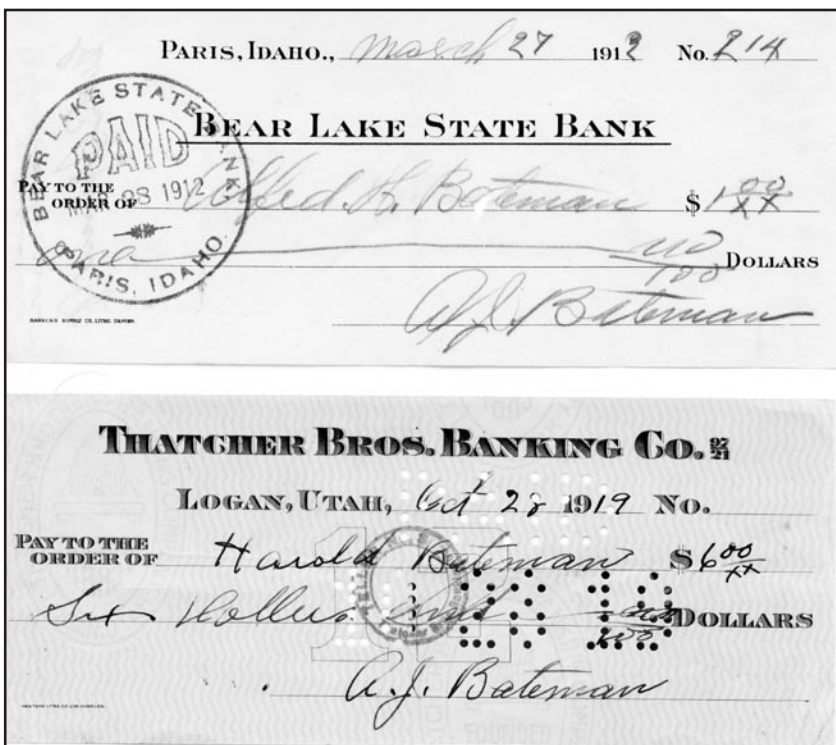 PARIS, IDAHO., March 27 1912 No. 214
BEAR LAKE STATE BANK
BEAR LAKE STATE BANK
PAID
MAR 28 1912
PARIS, IDAHO.
PAY TO THE
ORDER OF Alfred. H. Bateman $ 1 00/XX
One no/100 DOLLARS
A.J. Bateman
BANKERS SUPPLY CO. LITHO. DENVER.
THATCHER BROS. BANKING CO. 97/21
LOGAN, UTAH, Oct 28 1919 NO.
PAY TO THE
ORDER OF Harold Bateman $ 6 00/xx
Six Dollers and no/100 DOLLARS
A.J. Bateman
FOUNDED